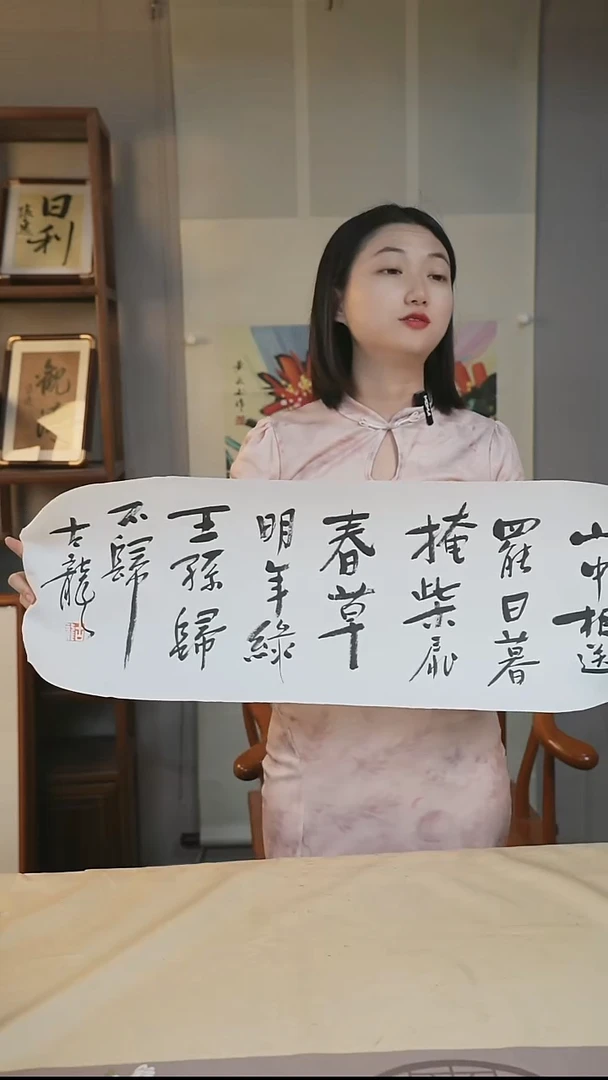 山中相送
罷日暮
掩柴扉
春草
明年綠
王孫歸
不歸
古龍
日利
觀